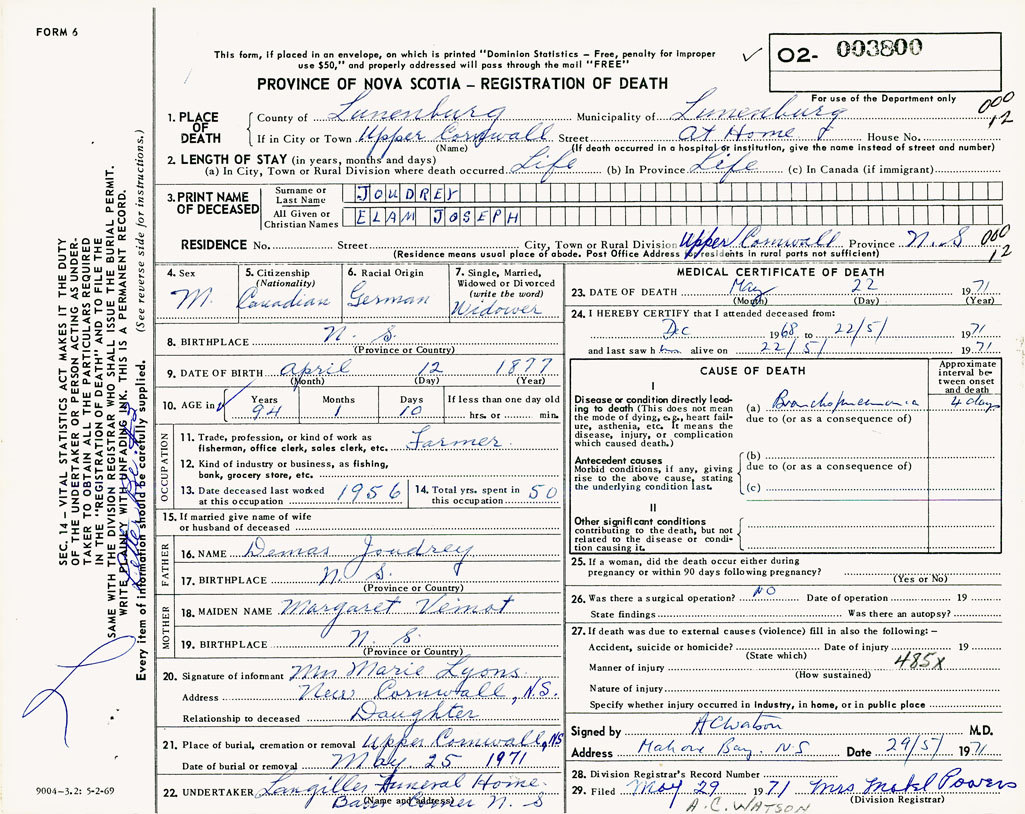 FORM 6
This form, if placed in an envelope, on which is printed "Dominion Statistics – Free, penalty for improper
use $50," and properly addressed will pass through the mail "FREE"
✓ O2- 003800
PROVINCE OF NOVA SCOTIA – REGISTRATION OF DEATH
For use of the Department only
1. PLACE OF DEATH County of Lunenburg Municipality of Lunenburg 000
If in City or Town Upper Cornwall Street At Home House No. 12
(Name) (If death occurred in a hospital or institution, give the name instead of street and number)
2. LENGTH OF STAY (in years, months and days)
(a) In City, Town or Rural Division where death occurred Life (b) In Province Life (c) In Canada (if immigrant)
3. PRINT NAME OF DECEASED Surname or Last Name JOUDREY
All Given or Christian Names ELAM JOSEPH
RESIDENCE No. Street City, Town or Rural Division Upper Cornwall Province N.S 000
(Residence means usual place of abode. Post Office Address for residents in rural parts not sufficient) 12
4. Sex M.
5. Citizenship (Nationality) Canadian
6. Racial Origin German
7. Single, Married, Widowed or Divorced (write the word) Widower
8. BIRTHPLACE N. S.
(Province or Country)
9. DATE OF BIRTH April 12 1877
(Month) (Day) (Year)
10. AGE in ✓ Years 94 Months 1 Days 10 If less than one day old hrs. or min.
OCCUPATION
11. Trade, profession, or kind of work as fisherman, office clerk, sales clerk, etc. Farmer.
12. Kind of industry or business, as fishing, bank, grocery store, etc.
13. Date deceased last worked at this occupation 1956
14. Total yrs. spent in this occupation 50
15. If married give name of wife or husband of deceased
FATHER
16. NAME Demas Joudrey
17. BIRTHPLACE N. S.
(Province or Country)
MOTHER
18. MAIDEN NAME Margaret Veinot
19. BIRTHPLACE N. S.
(Province or Country)
20. Signature of informant Mrs Marie Lyons
Address New Cornwall, N.S.
Relationship to deceased Daughter
21. Place of burial, cremation or removal Upper Cornwall, NS
Date of burial or removal May 25 1971
22. UNDERTAKER Langilles Funeral Home.
(Name and address) Corner N. S
MEDICAL CERTIFICATE OF DEATH
23. DATE OF DEATH May 22 1971
(Month) (Day) (Year)
24. I HEREBY CERTIFY that I attended deceased from:
Dec 1968 to 22/5/ 1971
and last saw h alive on 22/5/ 1971
CAUSE OF DEATH
Approximate interval between onset and death
I
Disease or condition directly leading to death (This does not mean the mode of dying, e.g., heart failure, asthenia, etc. It means the disease, injury, or complication which caused death.)
(a) Bronchopneumonia 4 days
due to (or as a consequence of)
Antecedent causes
Morbid conditions, if any, giving rise to the above cause, stating the underlying condition last.
(b)
due to (or as a consequence of)
(c)
II
Other significant conditions
contributing to the death, but not related to the disease or condition causing it.
25. If a woman, did the death occur either during pregnancy or within 90 days following pregnancy?
(Yes or No)
26. Was there a surgical operation? NO Date of operation 19
State findings Was there an autopsy?
27. If death was due to external causes (violence) fill in also the following: –
Accident, suicide or homicide? Date of injury 19
(State which) 485X
Manner of injury
(How sustained)
Nature of injury
Specify whether injury occurred in industry, in home, or in public place
Signed by A C Watson M.D.
Address Mahone Bay. N.S Date 29/5/ 1971
28. Division Registrar's Record Number
29. Filed May 29 1971 Mrs Powers
(Division Registrar)
A.C. WATSON
SEC. 14 – VITAL STATISTICS ACT MAKES IT THE DUTY
OF THE UNDERTAKER OR PERSON ACTING AS UNDER-
TAKER TO OBTAIN ALL THE PARTICULARS REQUIRED
IN THE "REGISTRATION OF DEATH" AND TO FILE THE
SAME WITH THE DIVISION REGISTRAR WHO SHALL ISSUE THE BURIAL PERMIT.
WRITE PLAINLY WITH UNFADING INK. THIS IS A PERMANENT RECORD.
Every item of information should be carefully supplied. (See reverse side for instructions.)
9004-3.2: 5-2-69